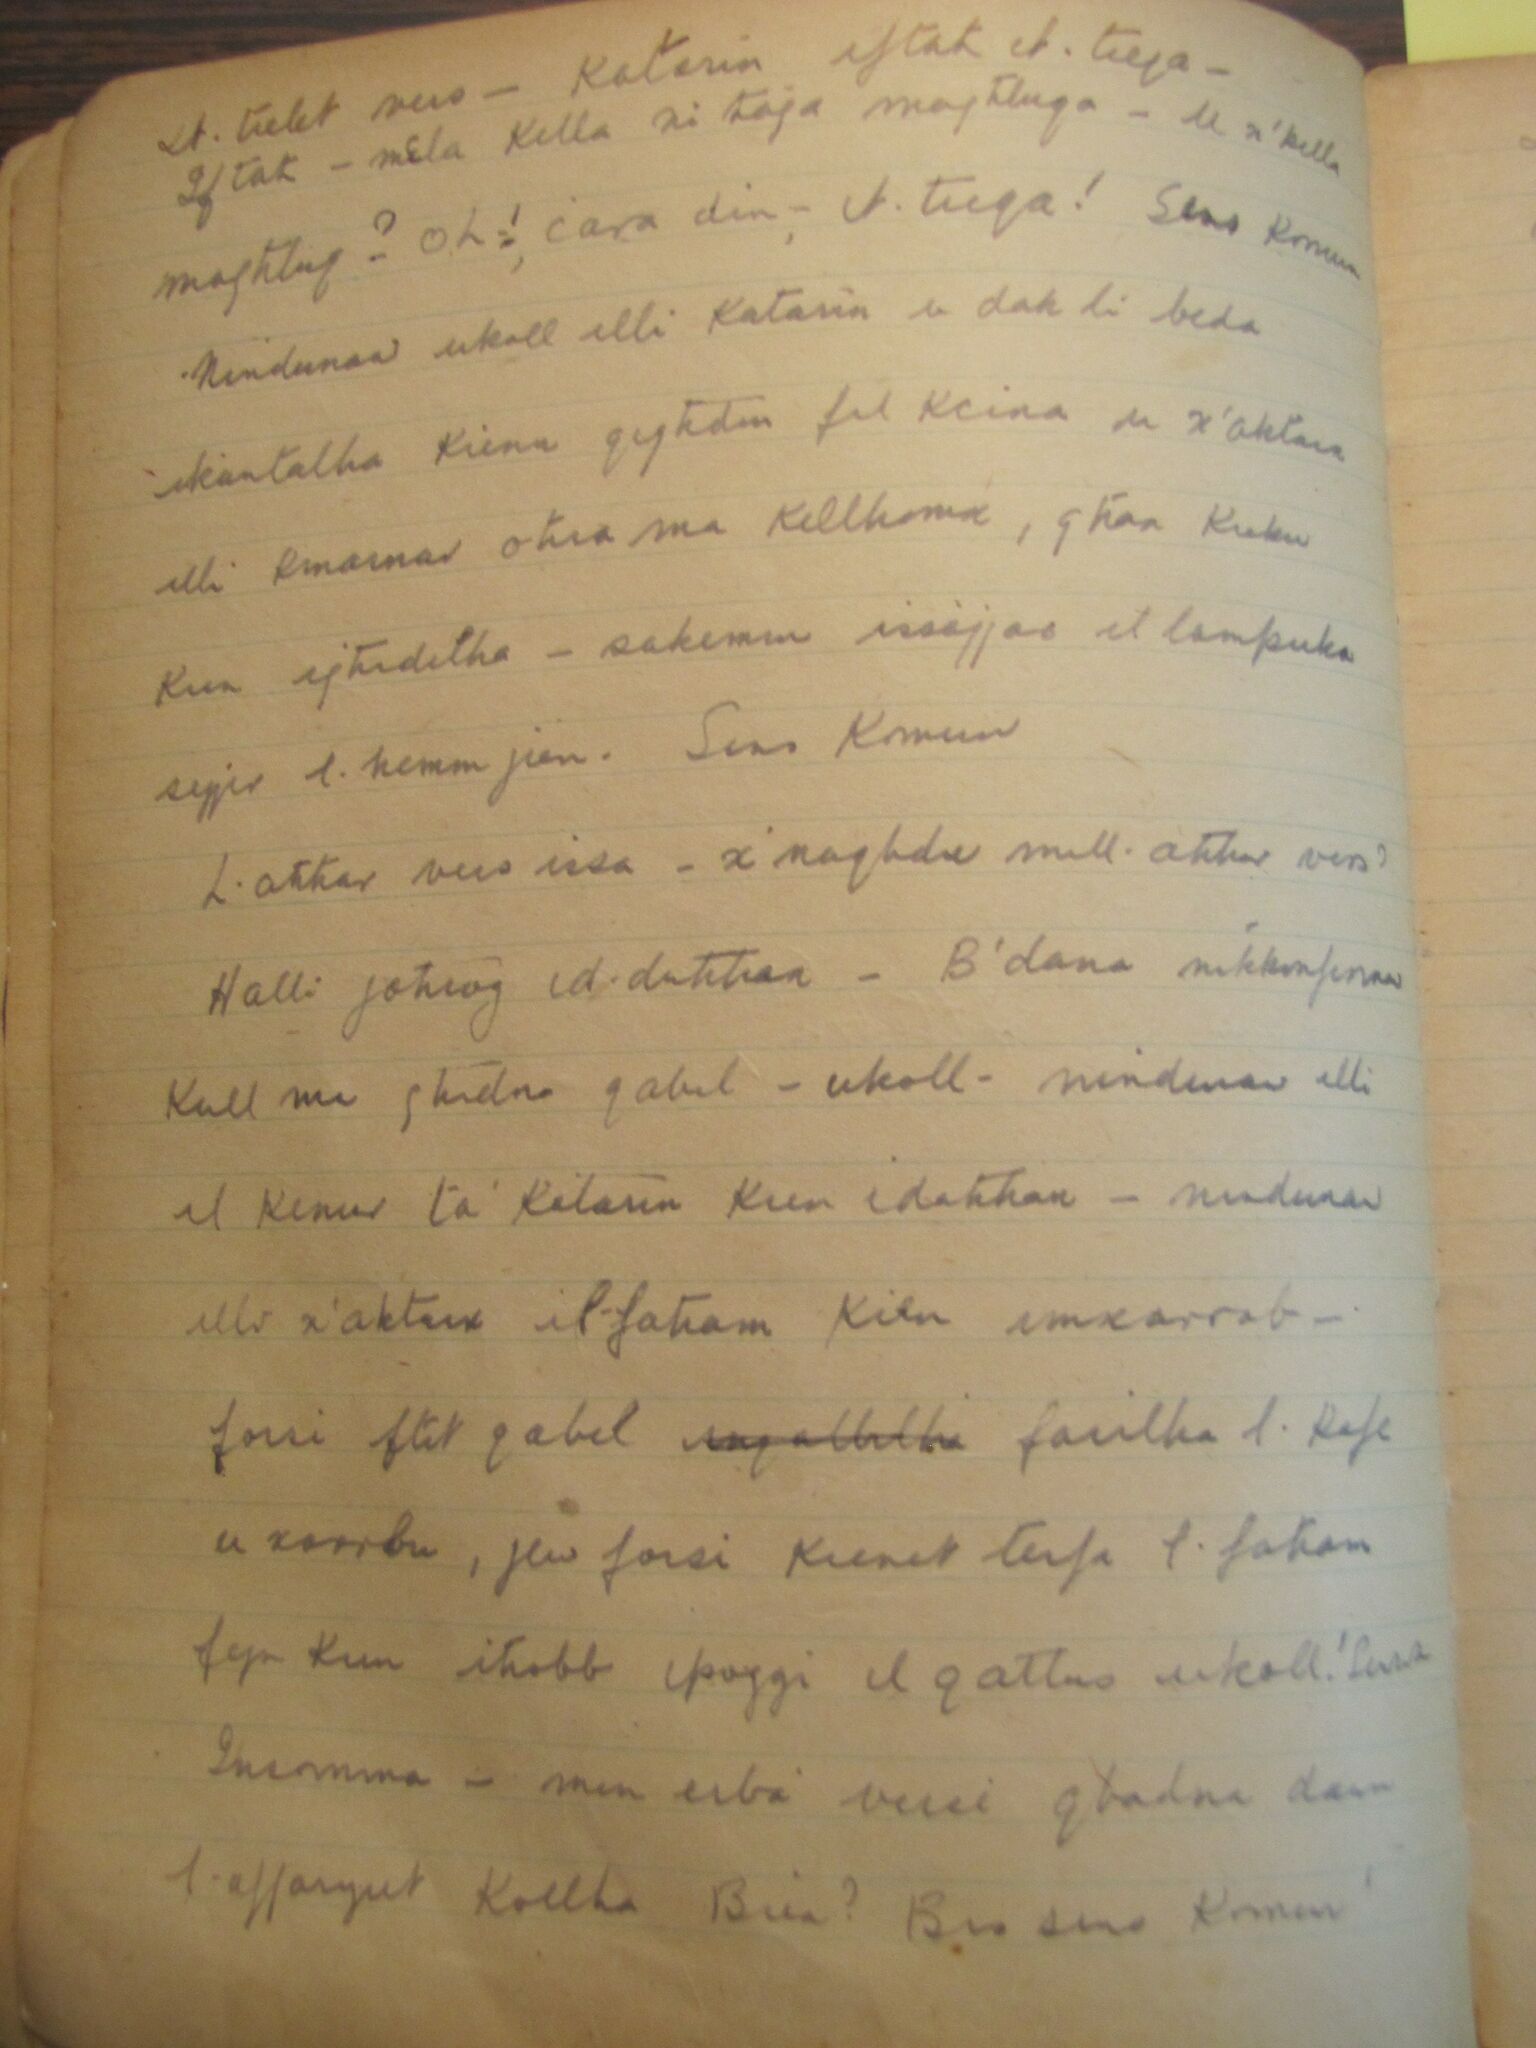 It. tielet vers – Katarin iftah it. tieqa –
Iftah – mela kella xi tàqa maghluqa – u x'kella
maghluq? Oh!, cara din – it. tieqa! Sens Komun
Nindunaw ukoll illi Katarin u dak li beda
ikantalha kienu qeghdin fil kcina u x'aktarx
illi kmamar ohra ma kellhomx, ghax kieku
kien ighidilha – sakemm issàjjar il lampuka
sejjer l. hemm jien. Sens Komun
L. ahhar vers issa – x'naghdu mill. ahhar vers?
Halli johrog id. duhhan – B'dana nikkonfermaw
kull ma ghidna qabel – ukoll – nindunaw illi
il kenur ta' Katarin kien idahhan – nindunaw
illi x'aktarx il-faham kien imxarrab –
forsi ftit qabel farilha l. kafe
u xarrbu, jew forsi kienet terfa l. faham
fejn kien ihobb ipoggi il qattus ukoll!
Insomma – minn erba' versi qbadna dawn
l. affarijiet kollha Biex? Bis sens Komun